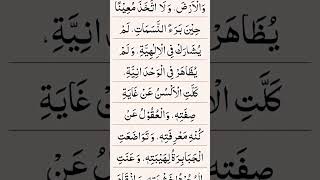 وَالْاَرْضَ. وَلَا اتَّخَذَ مُعِيْنًا
حِيْنَ بَرَءَ النَّسَمَاتِ. لَمْ
يُشَارَكْ فِى الْاِلٰهِيَّةِ. وَلَمْ
يُظَاهَرْ فِى الْوَحْدَانِيَّةِ.
كَلَّتِ الْاَلْسُنُ عَنْ غَايَةِ
صِفَتِهِ. وَالْعُقُوْلُ عَنْ
كُنْهِ مَعْرِفَتِهِ. وَتَوَاضَعَتِ
الْجَبَابِرَةُ لِهَيْبَتِهِ. وَعَنَتِ